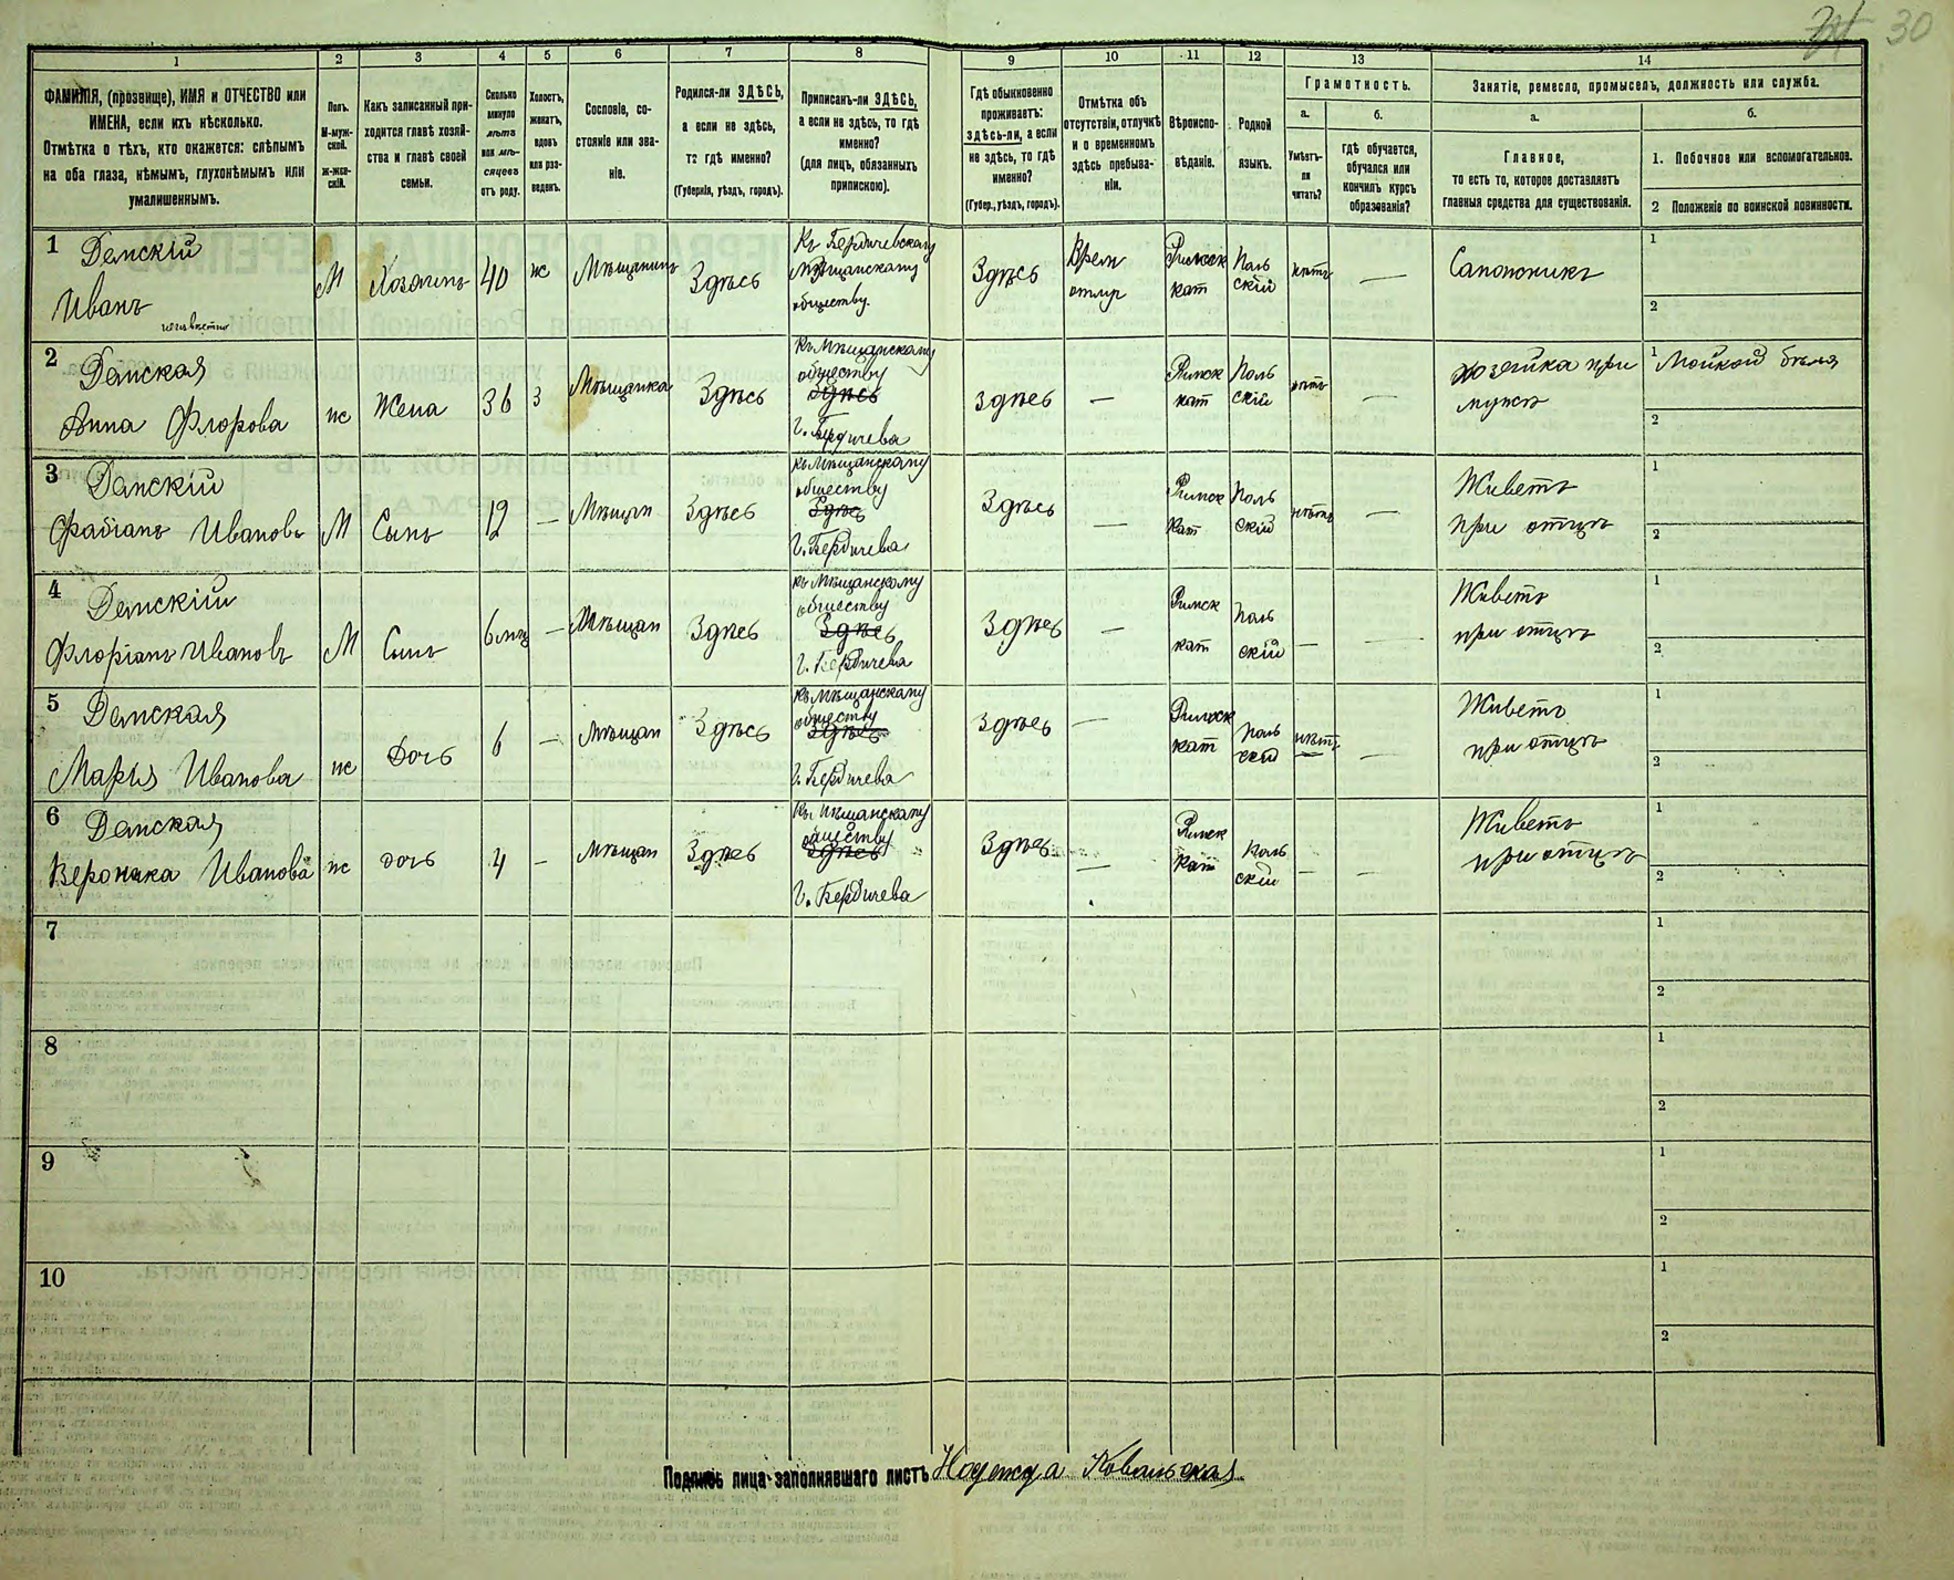 30
1 2 3 4 5 6 7 8 9 10 11 12 13 14
ФАМИЛІЯ, (прозвище), ИМЯ и ОТЧЕСТВО или
ИМЕНА, если ихъ нѣсколько.
Отмѣтка о тѣхъ, кто окажется: слѣпымъ
на оба глаза, нѣмымъ, глухонѣмымъ или
умалишеннымъ.
Полъ.
М-муж-
ской.
Ж-жен-
скій.
Какъ записанный при-
ходится главѣ хозяй-
ства и главѣ своей
семьи.
Сколько
минуло
лѣтъ
или мѣ-
сяцевъ
отъ роду.
Холостъ,
женатъ,
вдовъ
или раз-
веденъ.
Сословіе, со-
стояніе или зва-
ніе.
Родился-ли ЗДѢСЬ,
а если не здѣсь,
то гдѣ именно?
(Губернія, уѣздъ, городъ).
Приписанъ-ли ЗДѢСЬ,
а если не здѣсь, то гдѣ
именно?
(для лицъ, обязанныхъ
припискою).
Гдѣ обыкновенно
проживаетъ:
здѣсь-ли, а если
не здѣсь, то гдѣ
именно?
(Губер., уѣздъ, городъ).
Отмѣтка объ
отсутствіи, отлучкѣ
и о временномъ
здѣсь пребыва-
ніи.
Вѣроиспо-
вѣданіе.
Родной
языкъ.
Грамотность.
а.
Умѣетъ-
ли
читать?
б.
Гдѣ обучается,
обучался или
кончилъ курсъ
образованія?
Занятіе, ремесло, промыселъ, должность или служба.
а.
Главное,
то есть то, которое доставляетъ
главныя средства для существованія.
б.
1. Побочное или вспомогательное.
2 Положеніе по воинской повинности.
1 Дамскій
Иванъ
М Хозяинъ 40 ж Мѣщанинъ Здѣсь
Къ Бердичевскому
Мѣщанскому
обществу.
Здѣсь
Врем
отлуч
Римск
кат
Поль
скій
нѣтъ — Сапожникъ
1
2
2 Дамская
Анна Флорова
ж Жена 36 З Мѣщанка Здѣсь
Къ Мѣщанскому
обществу
Здѣсь
г. Бердичева
Здѣсь —
Римск
кат
Поль
скій
нѣтъ —
Хозяйка при
мужѣ
1 Мойкой бѣлья
2
3 Дамскій
Фабіанъ Ивановъ
М Сынъ 12 — Мѣщан Здѣсь
къ Мѣщанскому
обществу
Здѣсь
г. Бердичева
Здѣсь —
Римск
кат
Поль
скій
нѣтъ —
Живетъ
при отцѣ
1
2
4 Дамскій
Флоріанъ Ивановъ
М Сынъ 6 мѣ — Мѣщан Здѣсь
къ Мѣщанскому
обществу
Здѣсь
г. Бердичева
Здѣсь —
Римск
кат
Поль
скій
— —
Живетъ
при отцѣ
1
2
5 Дамская
Марія Иванова
ж Дочь 6 — Мѣщан Здѣсь
Къ Мѣщанскому
обществу
Здѣсь
г. Бердичева
Здѣсь —
Римск
кат
Поль
скій
нѣтъ —
Живетъ
при отцѣ
1
2
6 Дамская
Вероника Иванова
ж дочь 4 — Мѣщан Здѣсь
Къ Мѣщанскому
обществу
Здѣсь
г. Бердичева
Здѣсь —
Римск
кат
Поль
скій
— —
Живетъ
при отцѣ
1
2
7
1
2
8
1
2
9
1
2
10
1
2
Подпись лица заполнявшаго листъ Надежда Ковальская